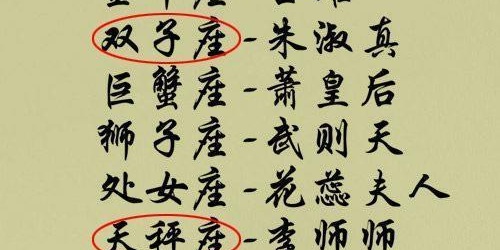 双子座-朱淑真
巨蟹座-萧皇后
狮子座-武则天
处女座-花蕊夫人
天秤座-李师师